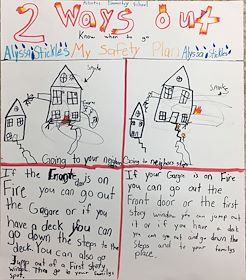 Elementary School
2 Ways out
Know when to go
Alyssa Stickle's My Safety Plan Alyssa Stickle's
Smoke
Smoke
Going to your neighbors
Going to neighbors
If the Front door is on
Fire you can go out
the Gagare or if you
have a deck You can
go down the steps to the
deck. You can also go
Jump out of a First story
window. Then go to your familys
spot.
If your Garage is on Fire
you can go out the
Front door or the first
story window you can jump out
it or if you have a deck
you can go out and go down the
Steps and to your familys
place.